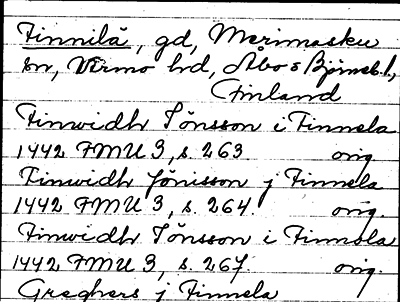 Finnilä, gd, Merimasku
sn, Virmo hd, Åbo o Björneb. l,
Finland
Finwidh Jönsson i Finnela
1442 FMU 3, s. 263 orig.
Finwidh Jönisson j Finnela
1442 FMU 3, s. 264. orig.
Finwidh Jönsson i Finnola
1442 FMU 3, s. 267. orig.
Greghers j Finnela